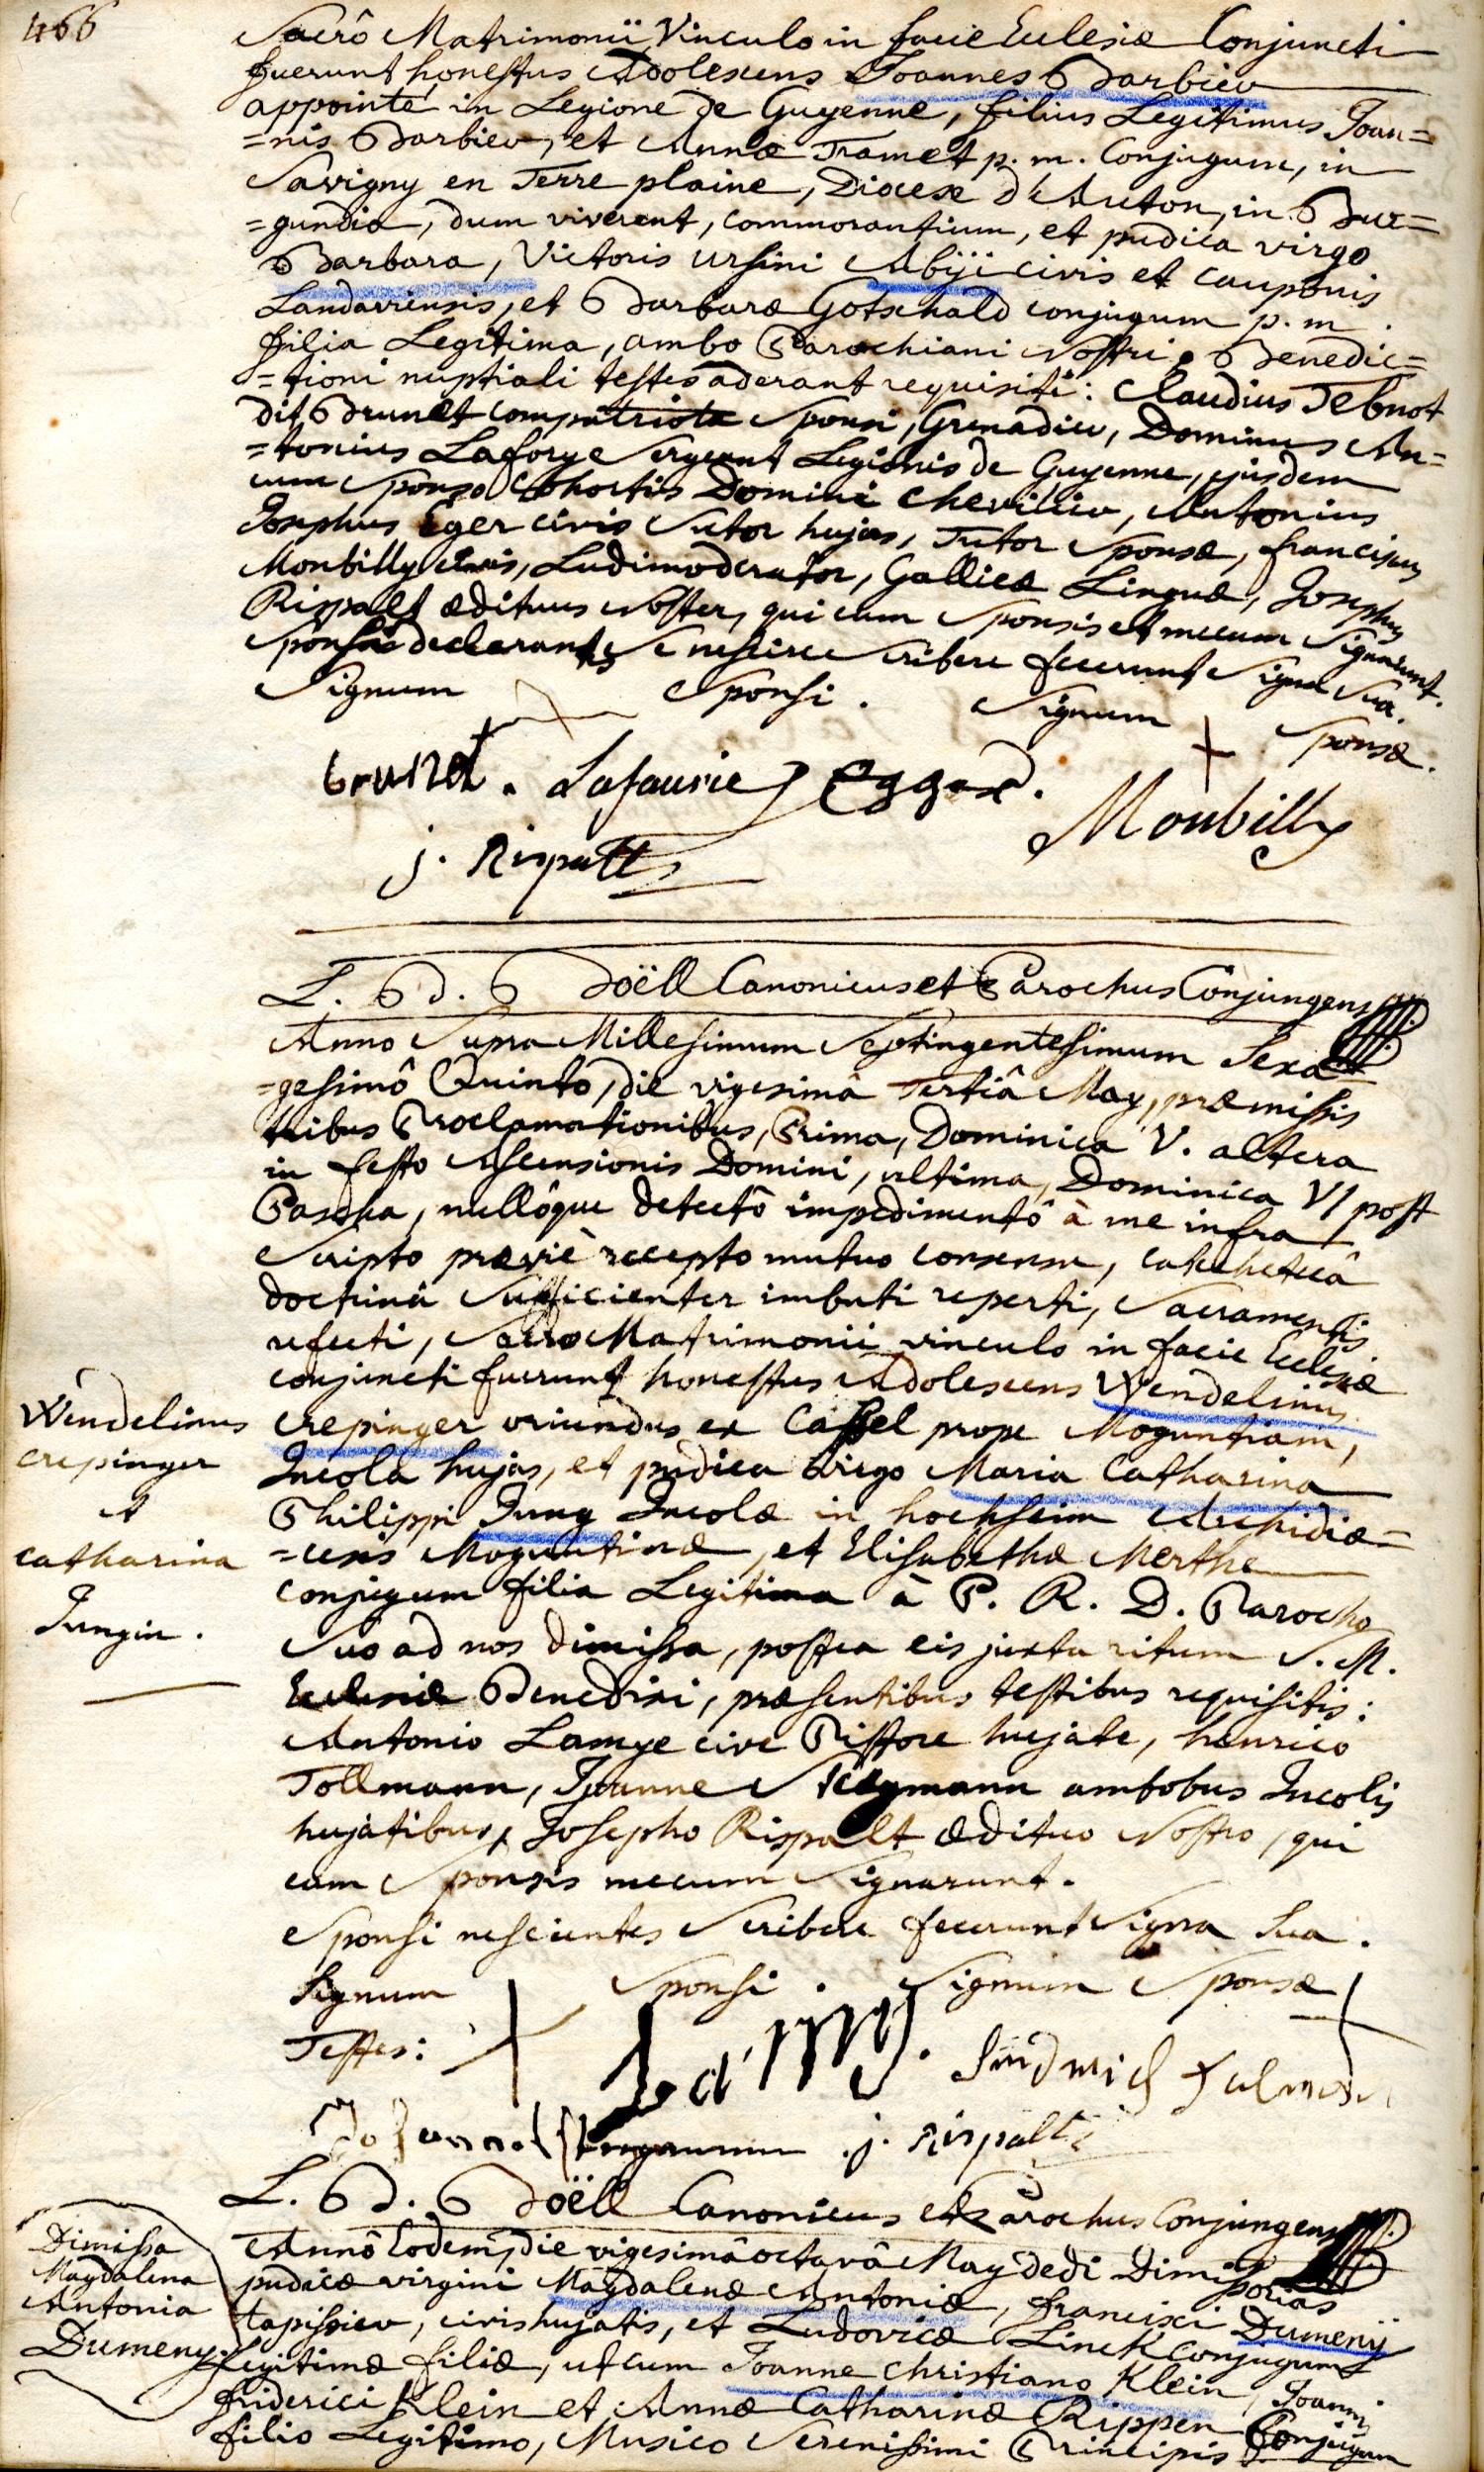 466
Sacrô Matrimonii Vinculo in facie Eculesiæ Conjuncti
fuerunt honestus Adolescens Joannes Barbier
appointé in Legione de Guyenne, filius Legitimus Joan=
=nis Barbier, et Annæ Tramet p. m. Conjugum, in
Savigny en Terre plaine, Diœcese d'Auton, in Bur=
=gundia, dum viverent, commorantium, et pudica virgo
Barbara, Victoris Ursini Abiji civis et cauponis
Landaviensis, et Barbaræ Gotschald conjugum p. m.
filia Legitima, ambo Parochiani Nostri. Benedic=
=tioni nuptiali testes aderant requisiti: Claudius Tebnot
dit Brunet compatriota Sponsi, Grenadier, Dominus An=
=tonius Laforge Sergeant Legionis de Guyenne, ejusdem
cum Sponso Cohortis Domini Chevillier, Antonius
Josephus Eger civis Sutor hujas, Tutor Sponsæ, franciscus
Monbilly civis, Ludimoderator, Gallicæ Linguæ, Josephus
Rispalt ædituus Noster, qui cum Sponsis et mecum Signarunt.
Sponsi declarantes Se nescire Scribere fecerunt Signa Sua.
Signum Sponsi. Signum Sponsæ.
brunet. Lafaurie Egger.
Monbilly
j. Rispalt
L. B d. B Doëll Canonicus et Parochus Conjungens
Anno Supra Millesimum Septingentesimum Sexa
=gesimô Quintô, die vigesimâ Tertiâ May, præmissis
tribus Proclamationibus, Prima, Dominica V. altera
in festo Ascensionis Domini, ultima, Dominica VI post
Pascha, nullôque detectô impedimentô à me infra
Scripto prævie recepto mutuo consensu, catecheticâ
doctrinâ Sufficienter imbuti reperti, Sacramentis
refecti, Sacro Matrimonii vinculo in facie Ecclesiæ
conjuncti fuerunt honestus Adolescens Wendelinus
Crepinger oriundus ex Cassel prope Moguntiam,
Incola hujas, et pudica virgo Maria Catharina
Philippi Jung Incolæ in hochheim Archidiæ=
=cesis Moguntinæ, et Elisabethæ Merthe
conjugum filia Legitima à P. R. D. Parocho
Suo ad nos dimissa, postea eis juxta ritum S. M.
Ecclesiæ Benedixi, præsentibus testibus requisitis:
Antonio Lamye cive Pistore hujate, henrico
Tollmann, Joanne Stegmann ambobus Incolis
hujatibus, Josepho Rispalt ædituo Nostro, qui
cum Sponsis mecum Signarunt.
Sponsi nescientes Scribere fecerunt Signa Sua.
Signum Sponsi. Signum Sponsæ
Testes:
Lamy.
j. Rispalt
L. B d. B Doëll Canonicus et Parochus Conjungens
Wendelinus
Crepinger
et
Catharina
Jungin.
Annô Eodem, die vigesimâ octavâ May dedi Dimissorias
pudicæ virgini Magdalenæ Antoniæ, francisci Dumenÿ
tapissier, civis hujatis, et Ludovicæ Linck Conjugum
Legitimæ filiæ, ut cum Joanne Christiano Klein, Joannis
friderici Klein et Annæ Catharinæ Rippen Conjugum
filio Legitimo, Musico Serenissimi Principis
Dimissa
Magdalena
Antonia
Dumeny.